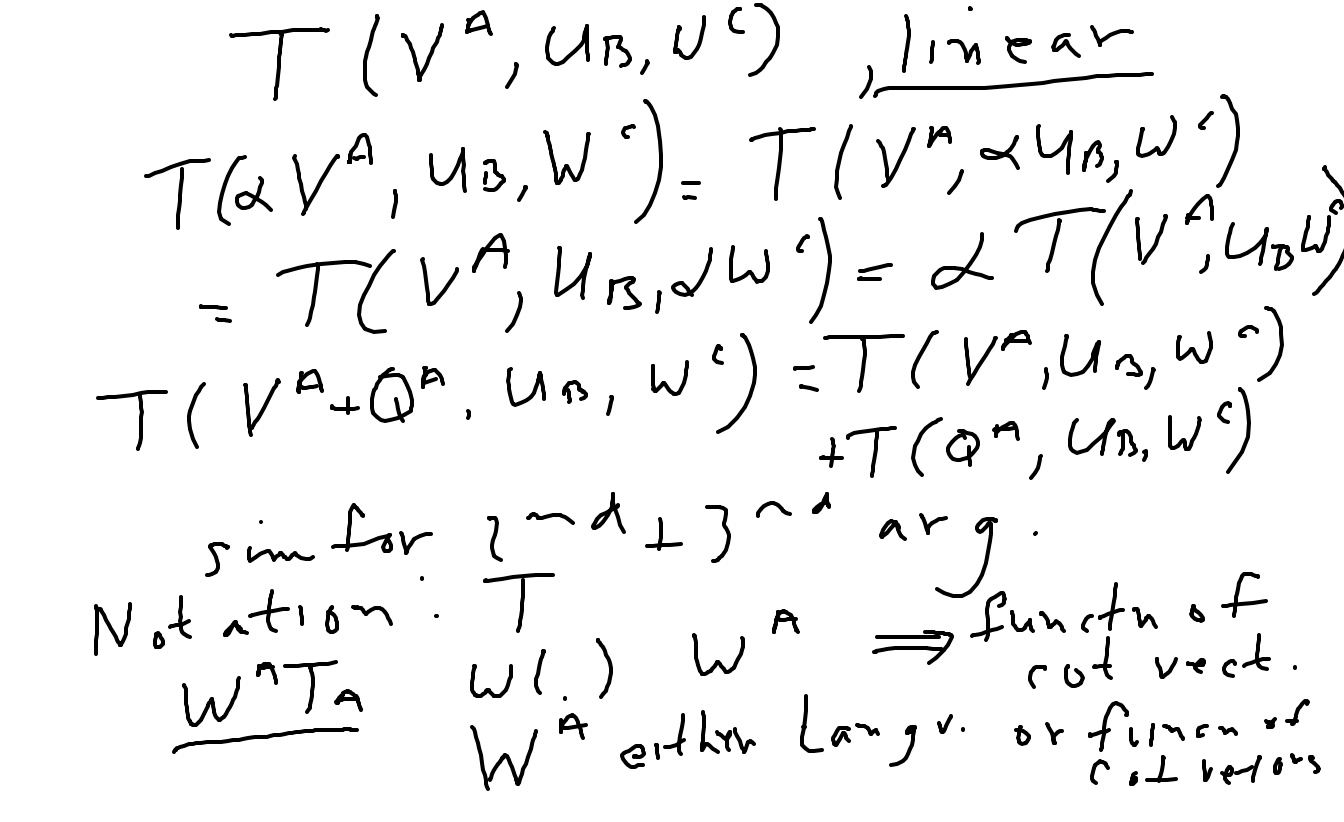 T(V^A, U_B, W^C), linear
T(αV^A, U_B, W^C) = T(V^A, αU_B, W^C)
= T(V^A, U_B, αW^C) = αT(V^A, U_B W^C)
T(V^A+Q^A, U_B, W^C) = T(V^A, U_B, W^C)
+T(Q^A, U_B, W^C)
sim for 2nd + 3nd arg.
Notation: T
W(.) W^A ⟹ functn of cot vect.
W^A T_A
W^A either Langu. or funcn of cotvectors